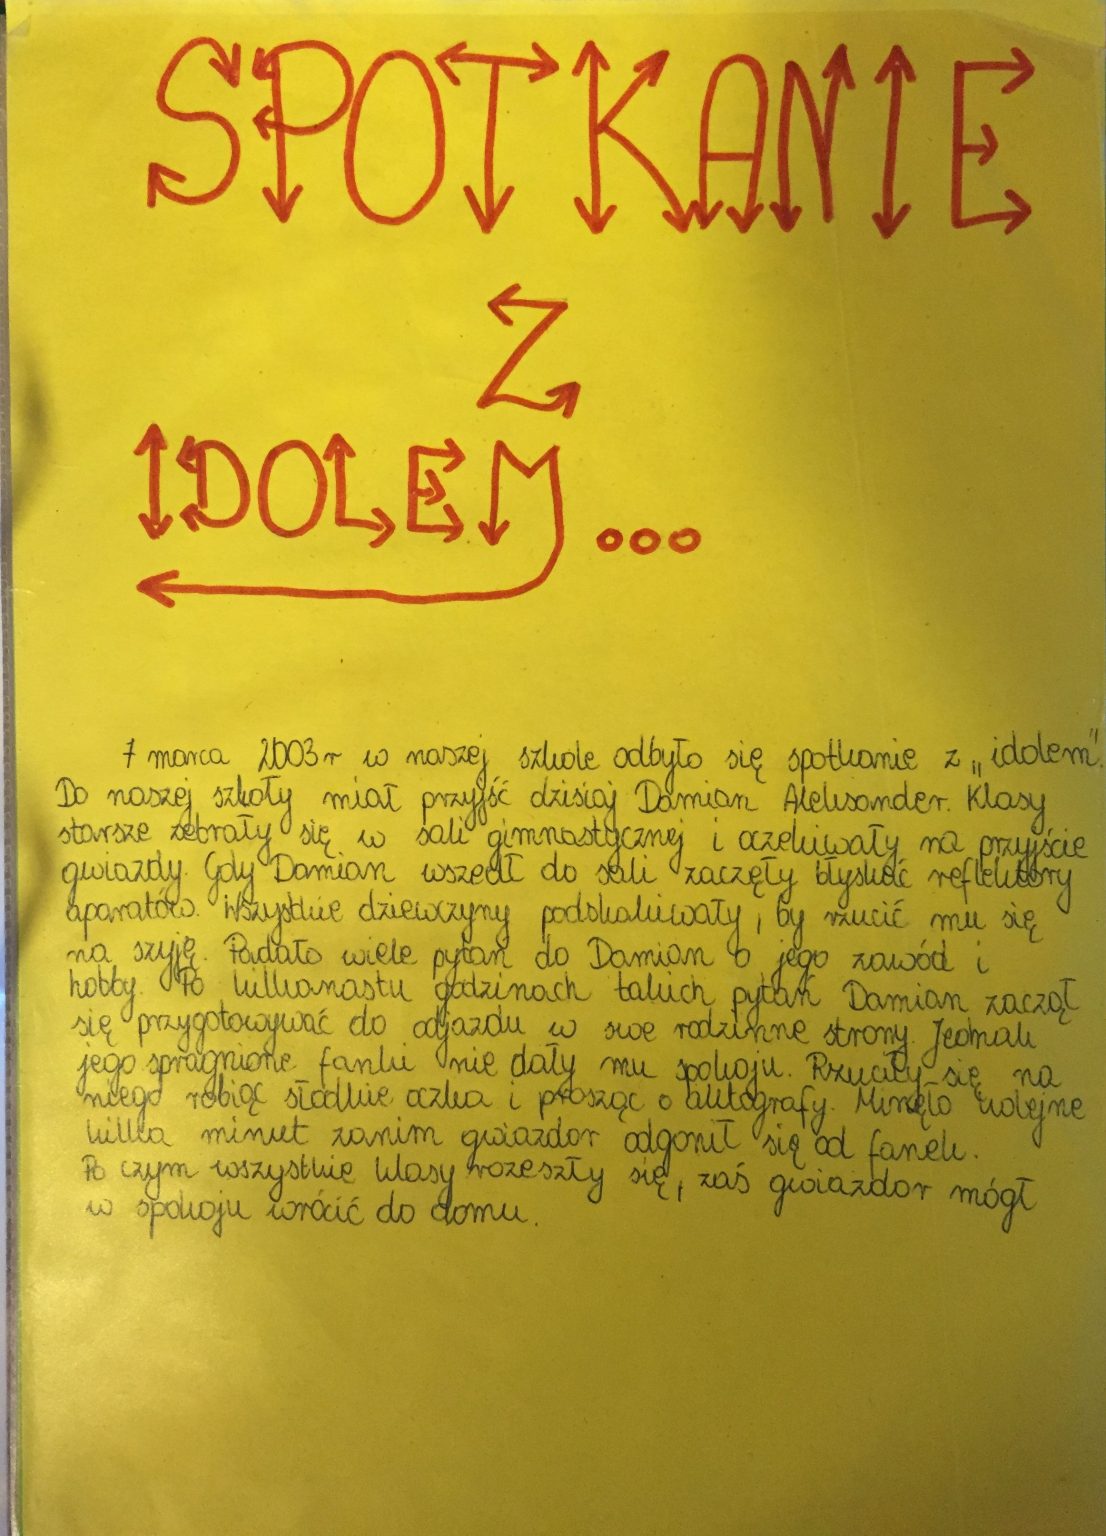 SPOTKANIE
Z
IDOLEM...
7 marca 2003r w naszej szkole odbyło się spotkanie z „idolem".
Do naszej szkoły miał przyjść dzisiaj Damian Aleksander. Klasy
starsze zebrały się w sali gimnastycznej i oczekiwały na przyjście
gwiazdy. Gdy Damian wszedł do sali zaczęły błyskać reflektory
aparatów. Wszystkie dziewczyny podskakiwały, by rzucić mu się
na szyję. Padało wiele pytań do Damian o jego zawód i
hobby. Po kilkanastu godzinach takich pytań Damian zaczął
się przygotowywać do odjazdu w swe rodzinne strony. Jednak
jego spragnione fanki nie dały mu spokoju. Rzuciły się na
niego robiąc słodkie oczka i prosząc o autografy. Minęło kolejne
kilka minut zanim gwiazdor odgonił się od fanek.
Po czym wszystkie klasy rozeszły się, zaś gwiazdor mógł
w spokoju wrócić do domu.